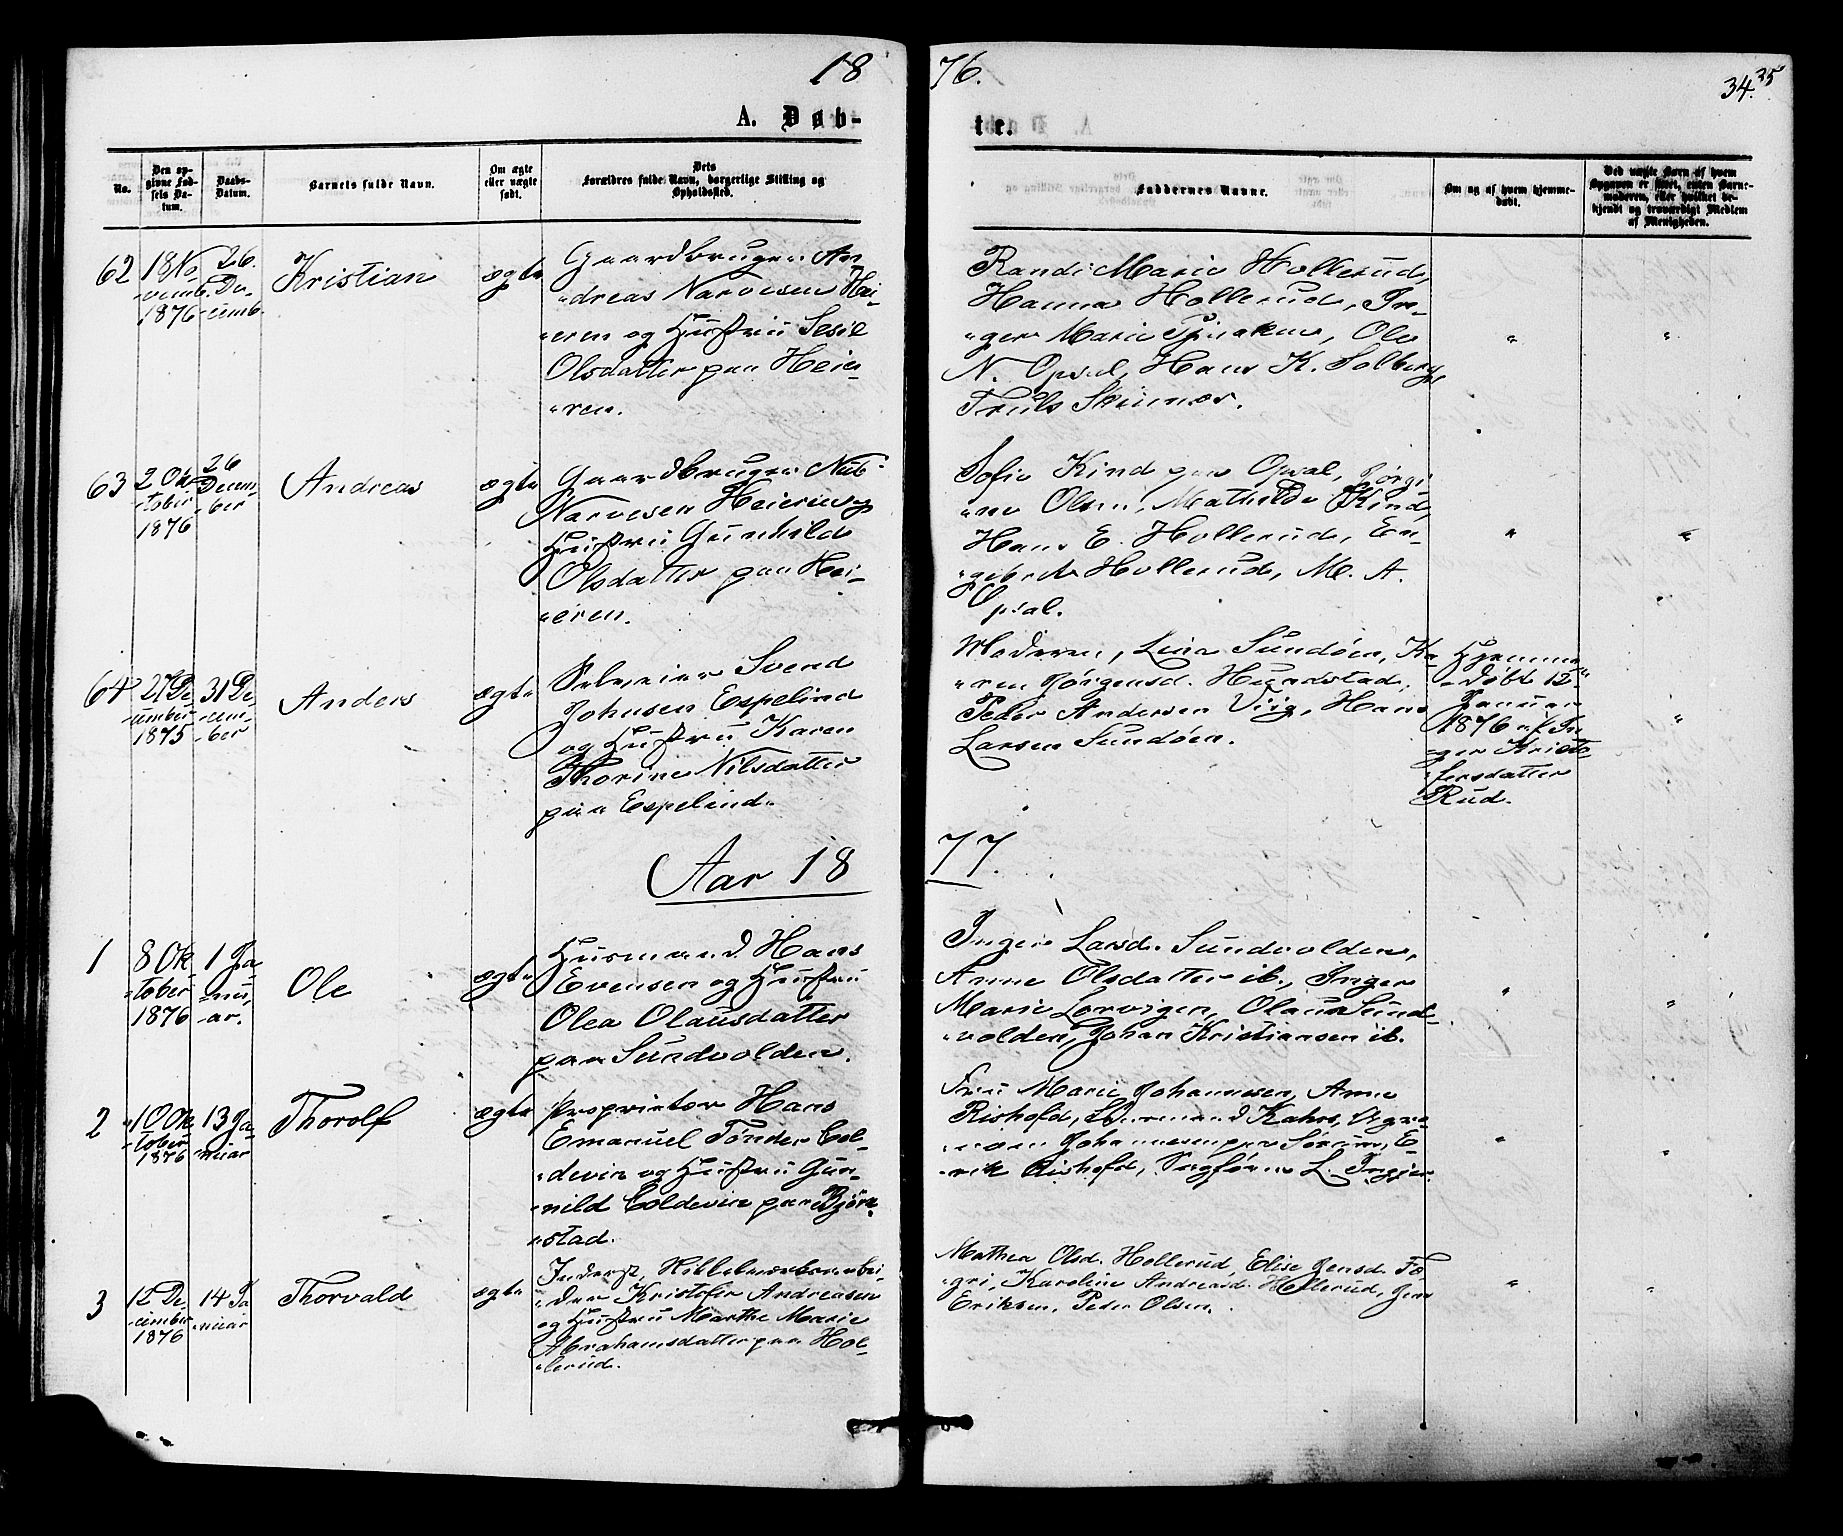 18
76.
34.
35
A. Døb-
te.
No.
Den op-
givne Fød-
sels Da-
tum.
Daabs-
Datum.
Barnets fulde Navn.
Om ægte
eller uægte
født.
Dets
Forældres fulde Navn, borgerlige Stilling og
Opholdssted.
Faddernes Navne.
Om og af hvem hjemme-
døbt.
Ved uægte Børn af hvem
Opgaven er skeet, enten Barne-
moderen, eller hvilket be-
kjendt og troværdigt Medlem
af Menigheden.
62
18 No-
vemb.
1876
26.
De-
cemb.
Kristian
ægte
Gaardbruger An-
dreas Narvesen Hei-
eren og Hustru Sesil
Olsdatter paa Heie-
ren.
Randi Marie Hollerud,
Hanna Hollerud, In-
ger Marie, Ole
N. Opsal, Hans K. Solberg,
Truls Skinnes.
"
"
63
2 Ok-
tober
1876
26
Decem-
ber
Andreas
ægte
Gaardbruger Nils
Narvesen Heieren og
Hustru Gunhild
Olsdatter paa Hei-
eren.
Sofie Kind paa Opsal, Jørgi-
ne Olsen, Mathilde Kind,
Hans E. Hollerud, En-
gebret Hollerud, M. A.
Opsal.
"
"
64
27 De-
cember
1875
31 De-
cem-
ber
Anders
ægte
Selveier Svend
Johnsen Espelind
og Hustru Karen
Thorine Nilsdatter
paa Espelind.
Moderen, Lina Sundøen, Ka-
ren Jørgensd. Hundstad,
Peder Andersen Viig, Hans
Larsen Sundøen.
Hjemme-
døbt 12te
Januar
1876 af In-
ger Kristo-
fersdatter
Rud.
"
Aar 18
77.
1
8 Ok-
tober
1876
1 Ja-
nu-
ar.
Ole
ægte
Husmand Hans
Evensen og Hustru
Olea Olausdatter
paa Sundvolden.
Inger Larsd. Sundvolden,
Anne Olsdatter ib., Inger
Marie Lorvigen, Olaus Sund-
volden, Johan Kristiansen ib.
"
"
2
10 Ok-
tober
1876
13 Ja-
nuar
Thorolf
ægte
Proprietær Hans
Emanuel Tønder Col-
devin og Hustru Gun-
nild Coldevin paa Bjørn-
stad.
Fru Marie Johannesen, Anne
Rishofd, Kahrs, Agro-
nom Johannesen paa Sørum, E-
rik Rishofd, Sagfører L. Ingier.
"
"
3
12 De-
cember
1876
14 Ja-
nuar
Thorvald
ægte
Inderst,
Kristofer Andreasen
og Hustru Marthe Marie
Abrahamsdatter paa Hol-
lerud.
Mathea Olsd. Hollerud, Elise Jensd. Fa-
gri, Karoline Andreasd. Hollerud, Jens
Eriksen, Peder Olsen.
"
"